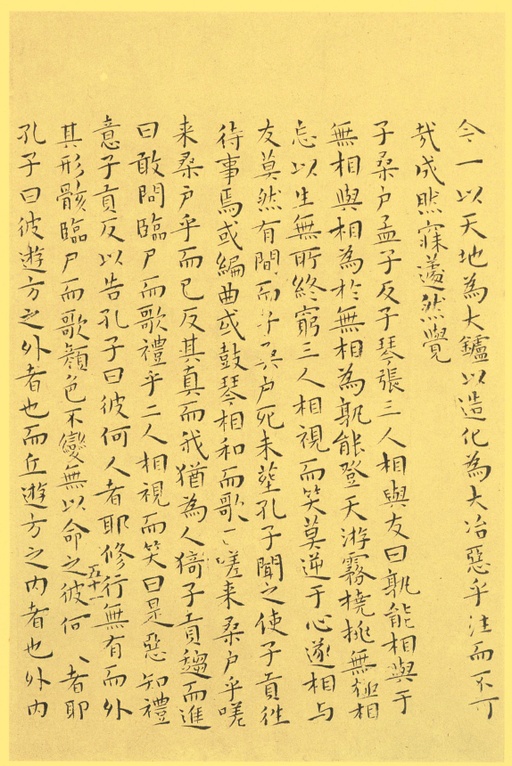 今一以天地為大鑪以造化為大冶惡乎往而不可
哉成然寐蘧然覺
子桑户孟子反子琴張三人相與友曰孰能相與于
無相與相為於無相為孰能登天游霧撓挑無極相
忘以生無所終窮三人相視而笑莫逆于心遂相与
友莫然有間而子桑户死未塟孔子聞之使子貢往
待事焉或編曲或鼓琴相和而歌曰嗟来桑户乎嗟
来桑户乎而已反其真而我猶為人猗子貢趨而進
曰敢問臨尸而歌禮乎二人相視而笑曰是惡知禮
意子貢反以告孔子曰彼何人者耶修行無有而外
其形骸臨尸而歌顔色不變無以命之彼何人者耶
五十一
孔子曰彼遊方之外者也而丘遊方之内者也外内